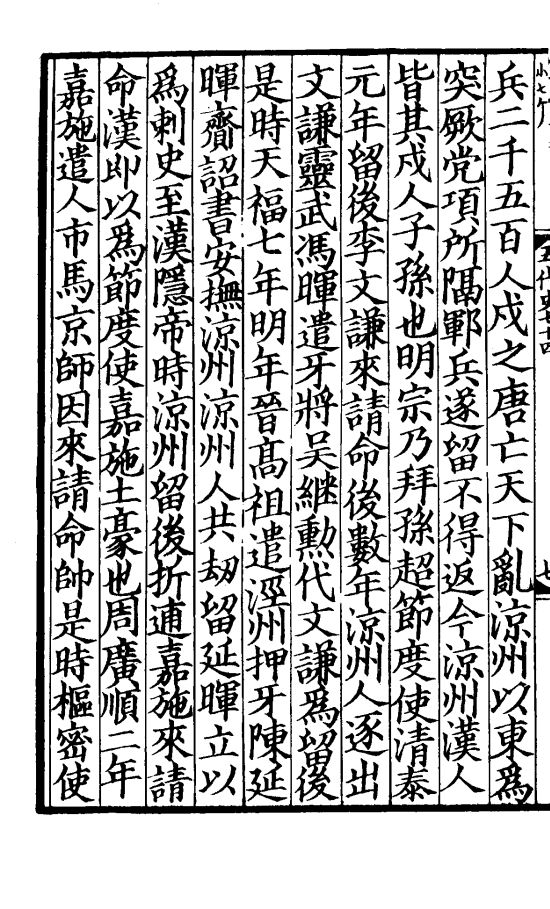 兵二千五百人戍之唐亡天下亂涼州以東爲
突厥党項所隔鄆兵遂留不得返今涼州漢人
皆其戍人子孫也明宗乃拜孫超節度使清泰
元年留後李文謙來請命後數年涼州人逐出
文謙靈武馮暉遣牙將吴継勳代文謙爲留後
是時天福七年明年晉髙祖遣涇州押牙陳延
暉齎詔書安撫涼州涼州人共劫留延暉立以
爲刺史至漢隱帝時涼州留後折逋嘉施來請
命漢即以爲節度使嘉施土豪也周廣順二年
嘉施遣人市馬京師因來請命帥是時樞密使